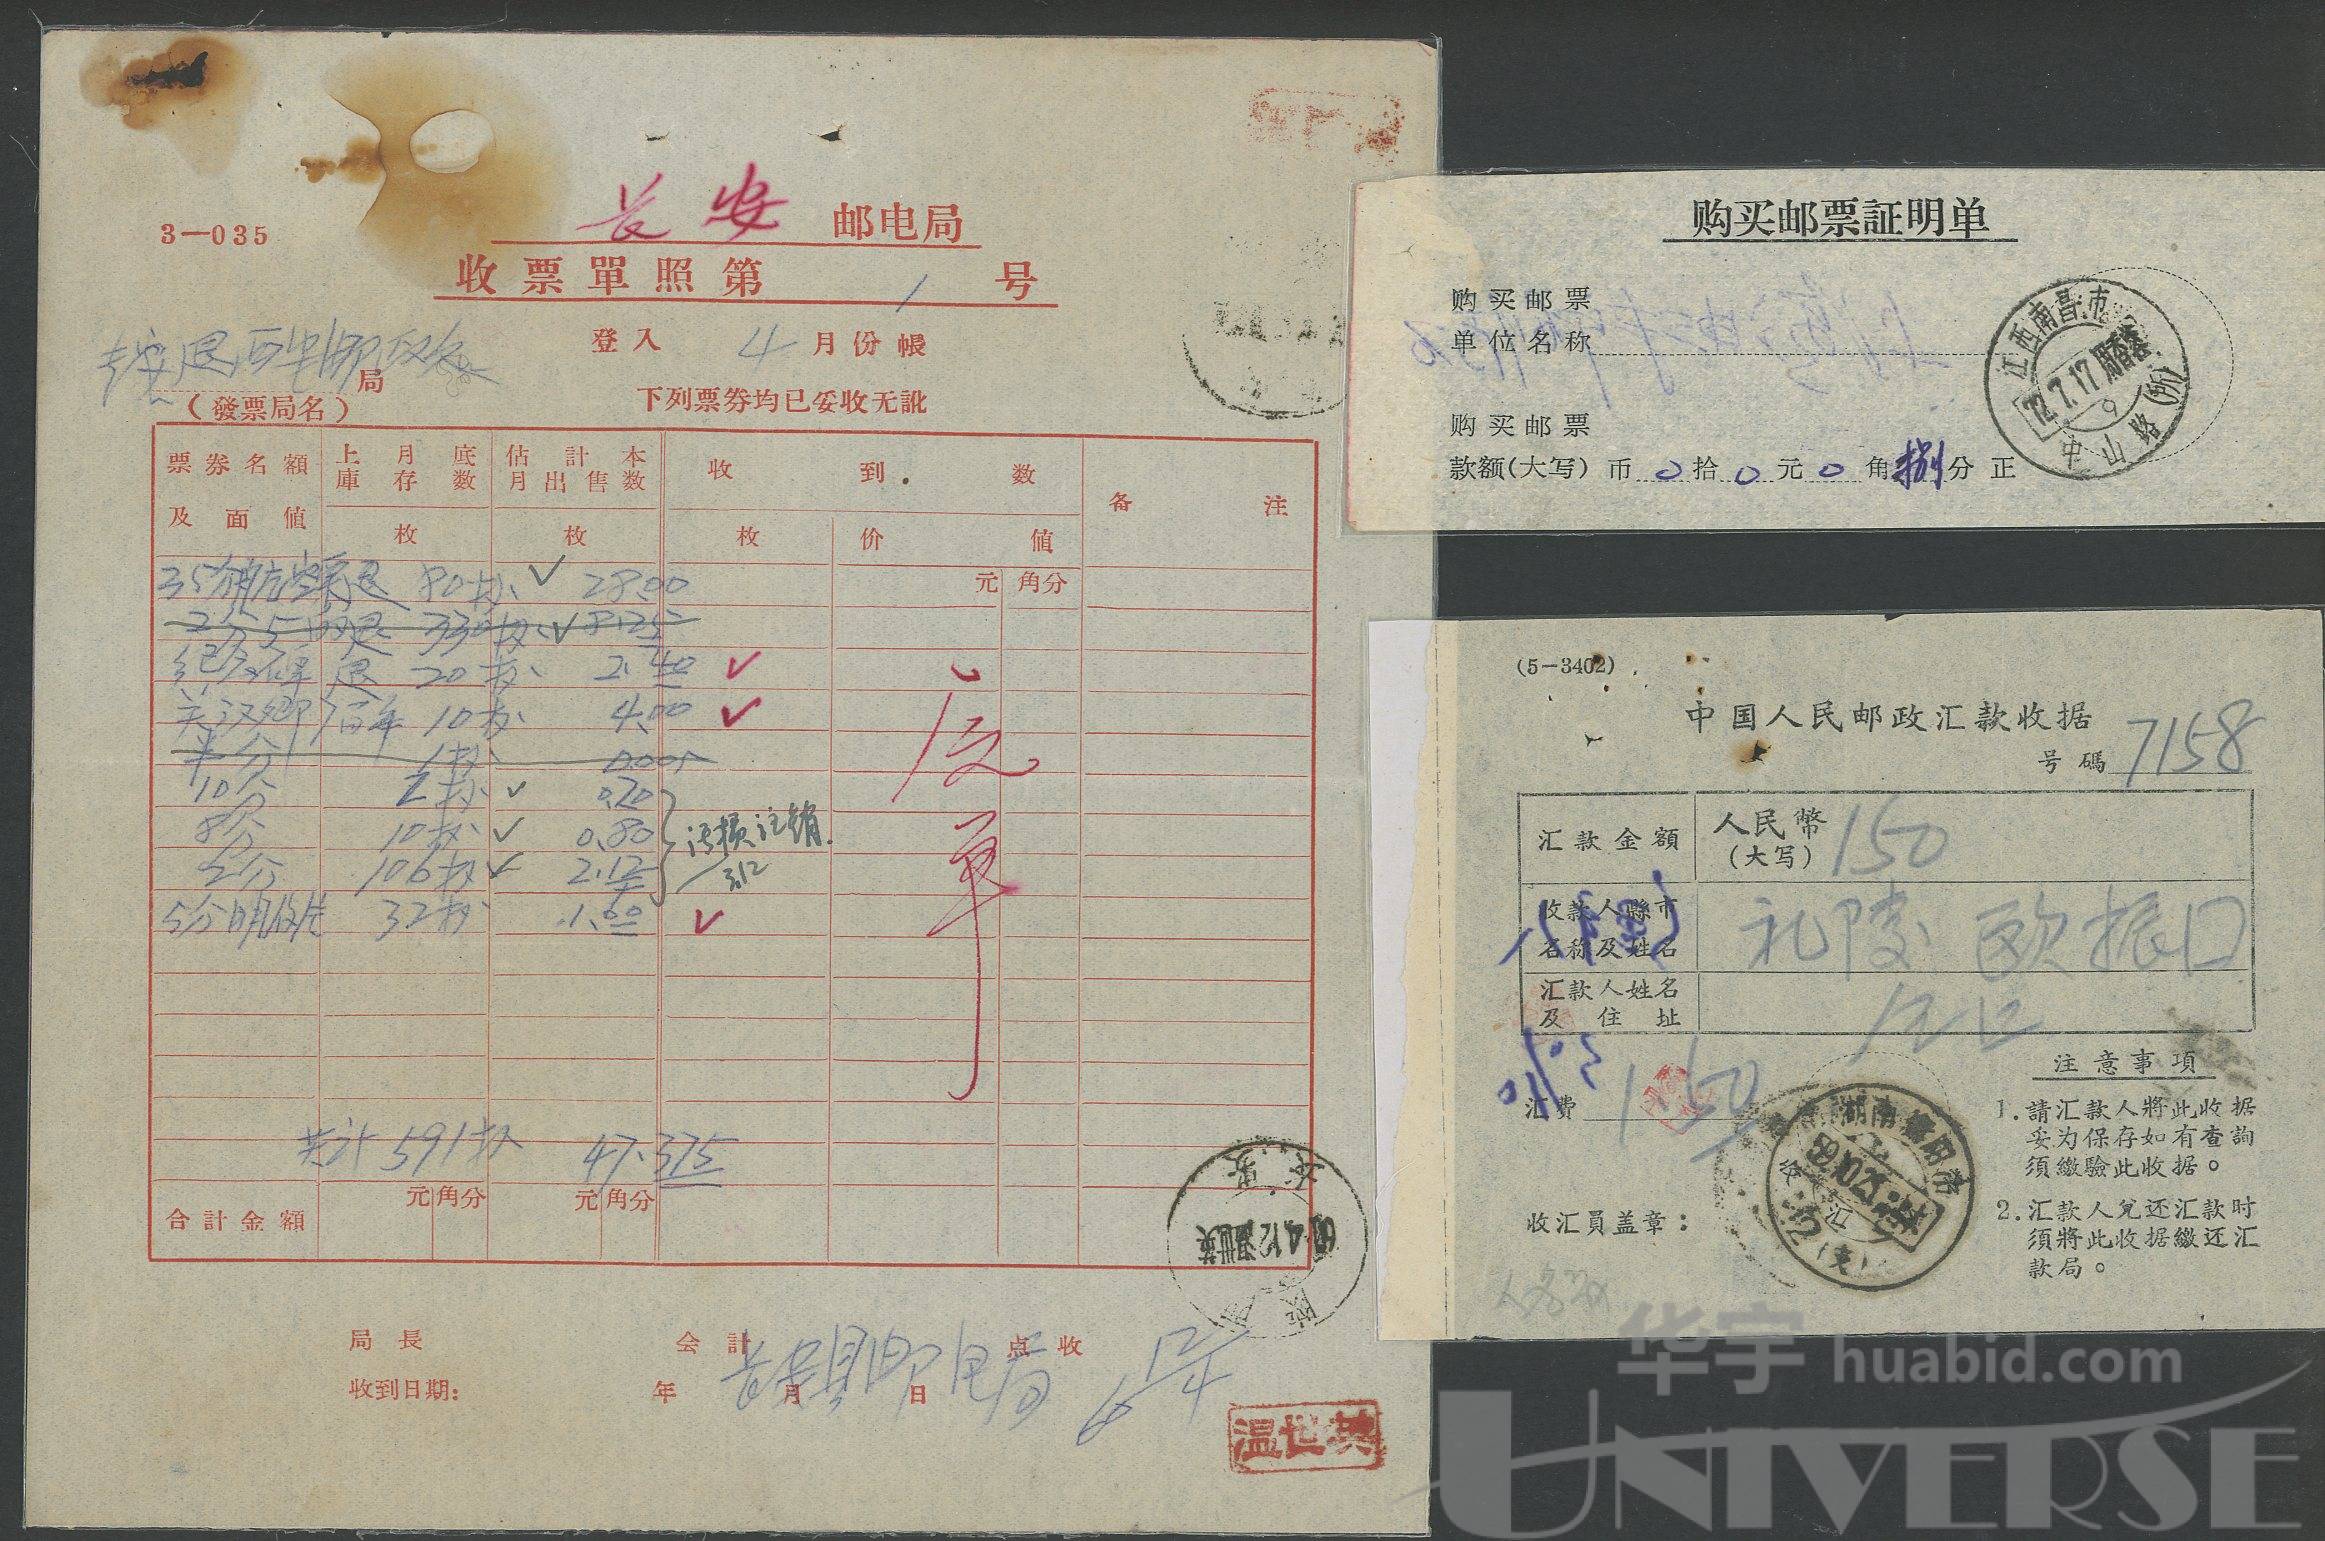 3—035
长安 邮电局
收票單照第 1 号
登入 4 月份帳
局
(發票局名)
下列票券均已妥收无訛
票券名額及面値
上月底庫存数
估計本月出售数
收到数
备注
枚
枚
枚
价値
元 角分
80枚 28.00
330枚 8.25
20枚 2.40
关汉卿 10枚 4.00
半分 1枚 0.005
10分 2枚 0.20
8分 10枚 0.80
2分 106枚 2.12
污损注销
3.12
5分明信片 32枚 1.00
共计 591枚 47.375
元 角分
元 角分
合計金額
局長
会計
点收
收到日期:
年 月 日
长安县邮电局
温世英
购买邮票証明单
购买邮票
单位名称
购买邮票
款额(大写) 币 0 拾 0 元 0 角 捌 分 正
江西南昌市
72.7.17
中山路(所)
(5—3402)
中国人民邮政汇款收据
号碼 7158
汇款金額
人民幣
(大写) 150
收款人縣市
名称及姓名
礼陵 欧振口
汇款人姓名
及住址
汇費 1.50
湖南衡阳市
59.10.23
收汇員盖章:
注意事項
1.請汇款人將此收据
妥为保存如有查詢
須繳驗此收据。
2.汇款人兌还汇款时
須將此收据繳还汇
款局。
华宇 huabid.com
UNIVERSE